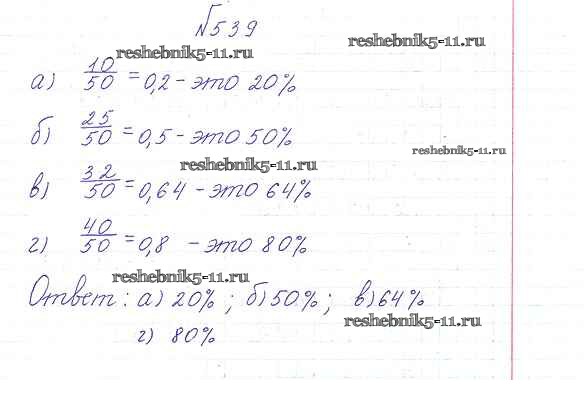 №539
reshebnik5-11.ru
reshebnik5-11.ru
а) 10/50 = 0,2 - это 20%
б) 25/50 = 0,5 - это 50%
reshebnik5-11.ru
reshebnik5-11.ru
в) 32/50 = 0,64 - это 64%
г) 40/50 = 0,8 - это 80%
reshebnik5-11.ru
Ответ: а) 20%; б) 50%; в) 64%
reshebnik5-11.ru
г) 80%